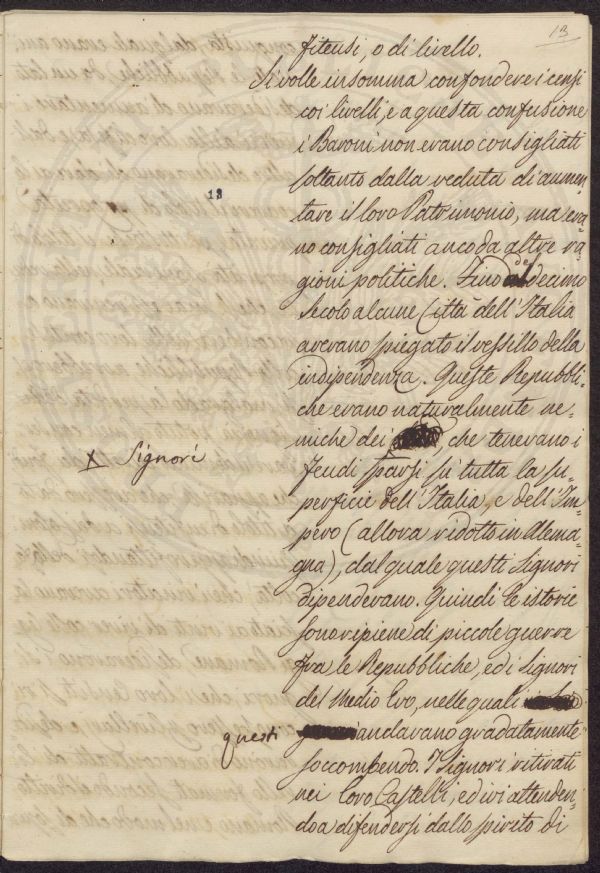 13
fiteusi, o di livello.
Si volle in somma confondere i censi
coi livelli, e a questa confusione
i Baroni non erano consigliati
soltanto dalla veduta di aumen-
13
tare il loro Patrimonio, ma era-
no consigliati anco da altre ra-
gioni politiche. Fino del decimo
Secolo alcune Città dell'Italia
avevano spiegato il vessillo della
indipendenza. Queste Repubbli-
che erano naturalmente ne-
miche dei , che tenevano i
x Signori
Feudi sparsi su tutta la su-
perficie dell'Italia, e dell'Im-
pero (allora ridotto in Alema-
gna), dal quale questi Signori
dipendevano. Quindi le istorie
sono ripiene di piccole guerre
fra le Repubbliche, ed i Signori
del Medio Evo, nelle quali
questi
andavano gradatamente
soccombendo. I Signori ritirati
nei loro Castelli, ed ivi attenden-
do a difendersi dallo spirito di